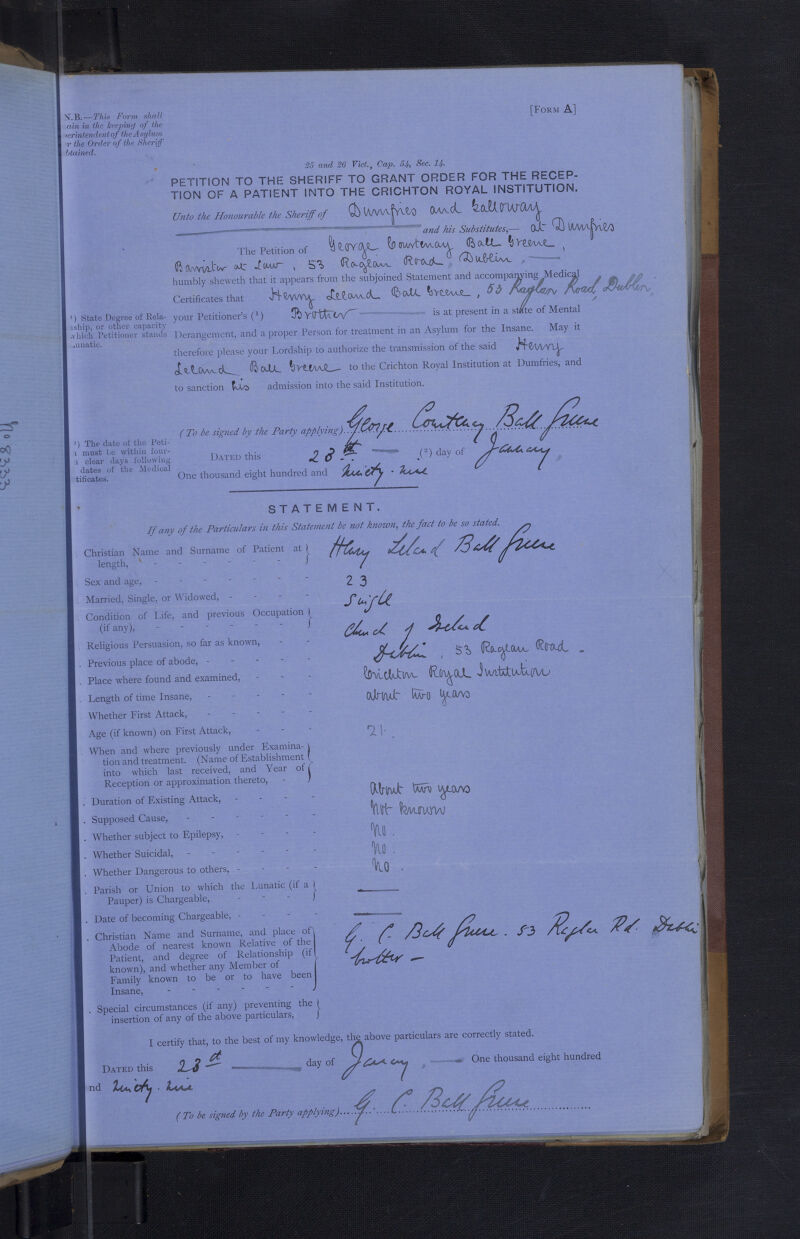 N.B.—This Form shall
ain in the keeping of the
erintendent of the Asylum
r the Order of the Sheriff
btained.
[FORM A]
25 and 26 Vict., Cap. 54, Sec. 14.
PETITION TO THE SHERIFF TO GRANT ORDER FOR THE RECEP-
TION OF A PATIENT INTO THE CRICHTON ROYAL INSTITUTION.
Unto the Honourable the Sheriff of Dumfries and Galloway
and his Substitutes,— at Dumfries
The Petition of George Courtenay Ball Greene,
Barrister at Law, 53 Raglan Road, Dublin,
humbly sheweth that it appears from the subjoined Statement and accompanying Medical
Certificates that Henry Leland Ball Greene, 53 Raglan Road, Dublin,
¹) State Degree of Rela-
ship, or other capacity
which Petitioner stands
unatic.
your Petitioner's (¹) Brother is at present in a state of Mental
Derangement, and a proper Person for treatment in an Asylum for the Insane. May it
therefore please your Lordship to authorize the transmission of the said Henry
Leland Ball Greene to the Crichton Royal Institution at Dumfries, and
to sanction his admission into the said Institution.
No 8333
(To be signed by the Party applying) George Courtenay Ball Greene
²) The date of the Peti-
must be within four-
clear days following
dates of the Medical
tificates.
DATED this 28th (²) day of January,
One thousand eight hundred and ninety-nine
STATEMENT.
If any of the Particulars in this Statement be not known, the fact to be so stated.
Christian Name and Surname of Patient at length, Henry Leland Ball Greene
Sex and age, 23
Married, Single, or Widowed, Single
Condition of Life, and previous Occupation (if any),
Religious Persuasion, so far as known, Church of Ireland
Previous place of abode, Dublin, 53 Raglan Road -
Place where found and examined, Crichton Royal Institution
Length of time Insane, about two years
Whether First Attack,
Age (if known) on First Attack, 21.
When and where previously under Examina-
tion and treatment. (Name of Establishment
into which last received, and Year of
Reception or approximation thereto,
Duration of Existing Attack, About two years
Supposed Cause, Not known
Whether subject to Epilepsy, No.
Whether Suicidal, No.
Whether Dangerous to others, No.
Parish or Union to which the Lunatic (if a
Pauper) is Chargeable,
Date of becoming Chargeable,
Christian Name and Surname, and place of G. C. Ball Greene. 53 Raglan Rd. Dublin
Abode of nearest known Relative of the brother —
Patient, and degree of Relationship (if
known), and whether any Member of
Family known to be or to have been
Insane,
Special circumstances (if any) preventing the
insertion of any of the above particulars,
I certify that, to the best of my knowledge, the above particulars are correctly stated.
DATED this 28th day of January, One thousand eight hundred
nd ninety-nine
(To be signed by the Party applying) G. C. Ball Greene